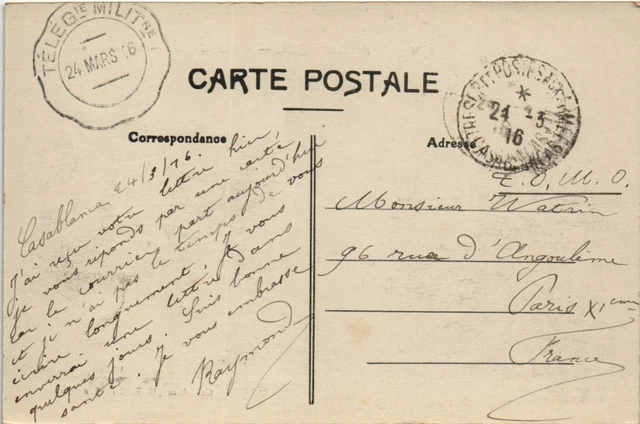 TÉLÉGIE MILITRE
24 MARS 16
CARTE POSTALE
TRÉSOR ET POSTES AUX ARMÉES
24 -3
16
CASABLANCA
Correspondance
Adresse
Casablanca 24/3/16.
J'ai reçu votre lettre hier,
je vous réponds par une carte
car le courrier part aujourd'hui
et je n'ai pas le temps de vous
écrire longuement. Je vous
enverrai une lettre dans
quelques jours. Suis bonne
santé. Je vous embrasse
Raymond
T.O.M.O.
Monsieur Watrin
96 rue d'Angoulême
Paris XIème
France